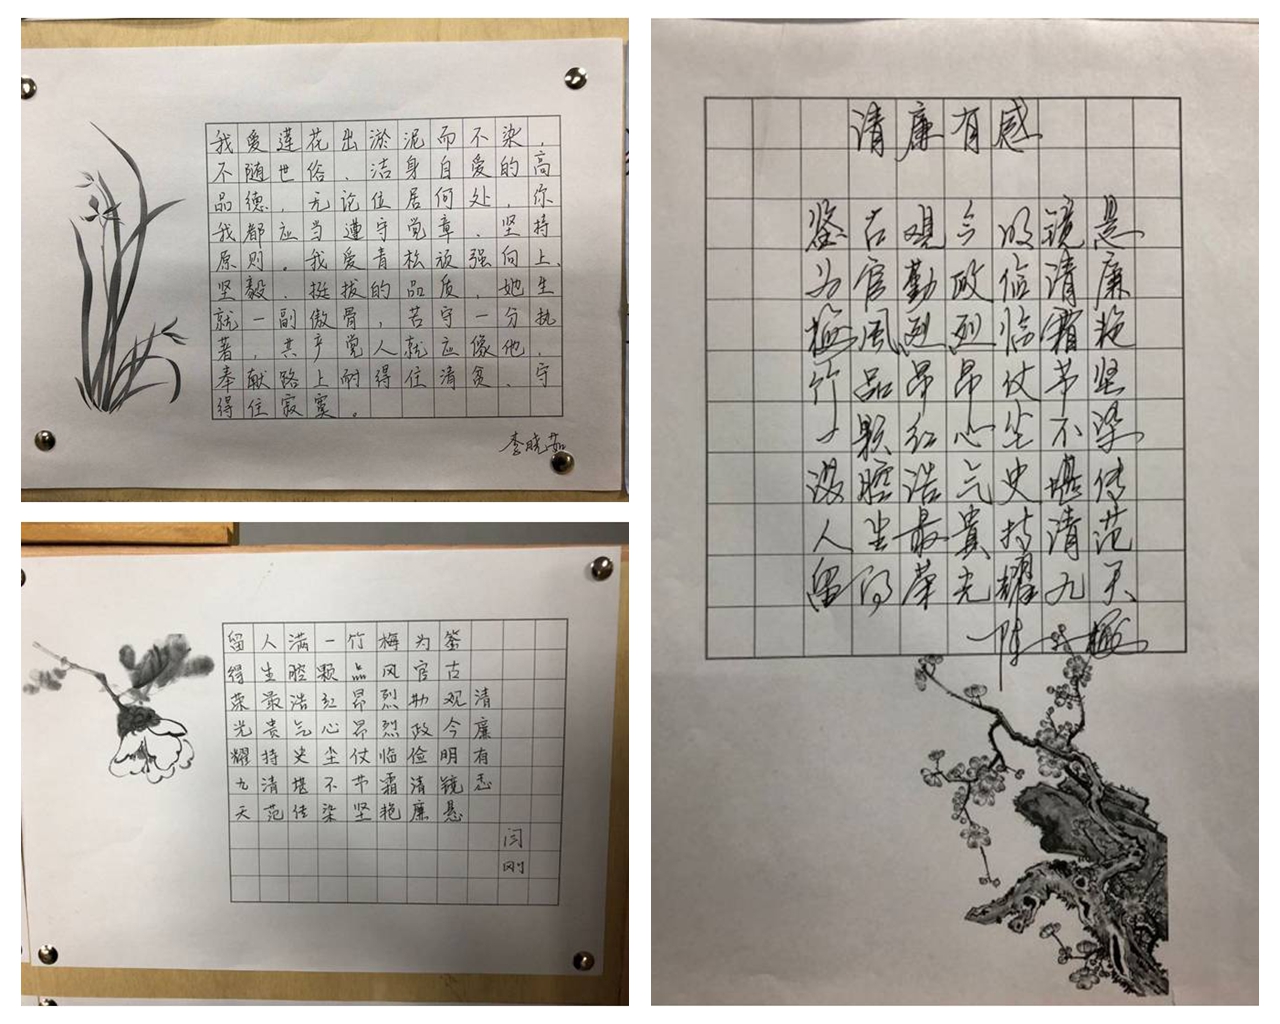 我爱莲花出淤泥而不染，
不随世俗、洁身自爱的高
品德，无论位居何处，你
我都应当遵守党章、坚持
原则。我爱青松顽强向上、
坚毅、挺拔的品质，她生
就一副傲骨，苦守一分执
著，共产党人就应像他，
奉献路上耐得住清贫、守
得住寂寞。
李晓茹
清廉有感
鉴古观今明镜悬
为官勤政俭清廉
梅风烈烈临霜艳
竹品昂昂仗节坚
一颗红心尘不染
满腔浩气史堪传
人生最贵持清范
留得荣光耀九天
闫刚
清廉有感
鉴古观今明镜悬
为官勤政俭清廉
梅風烈烈临霜艳
竹品昂昂仗节坚
一颗红心尘不染
满腔浩气史堪传
人生最贵持清范
留得荣光耀九天
陈